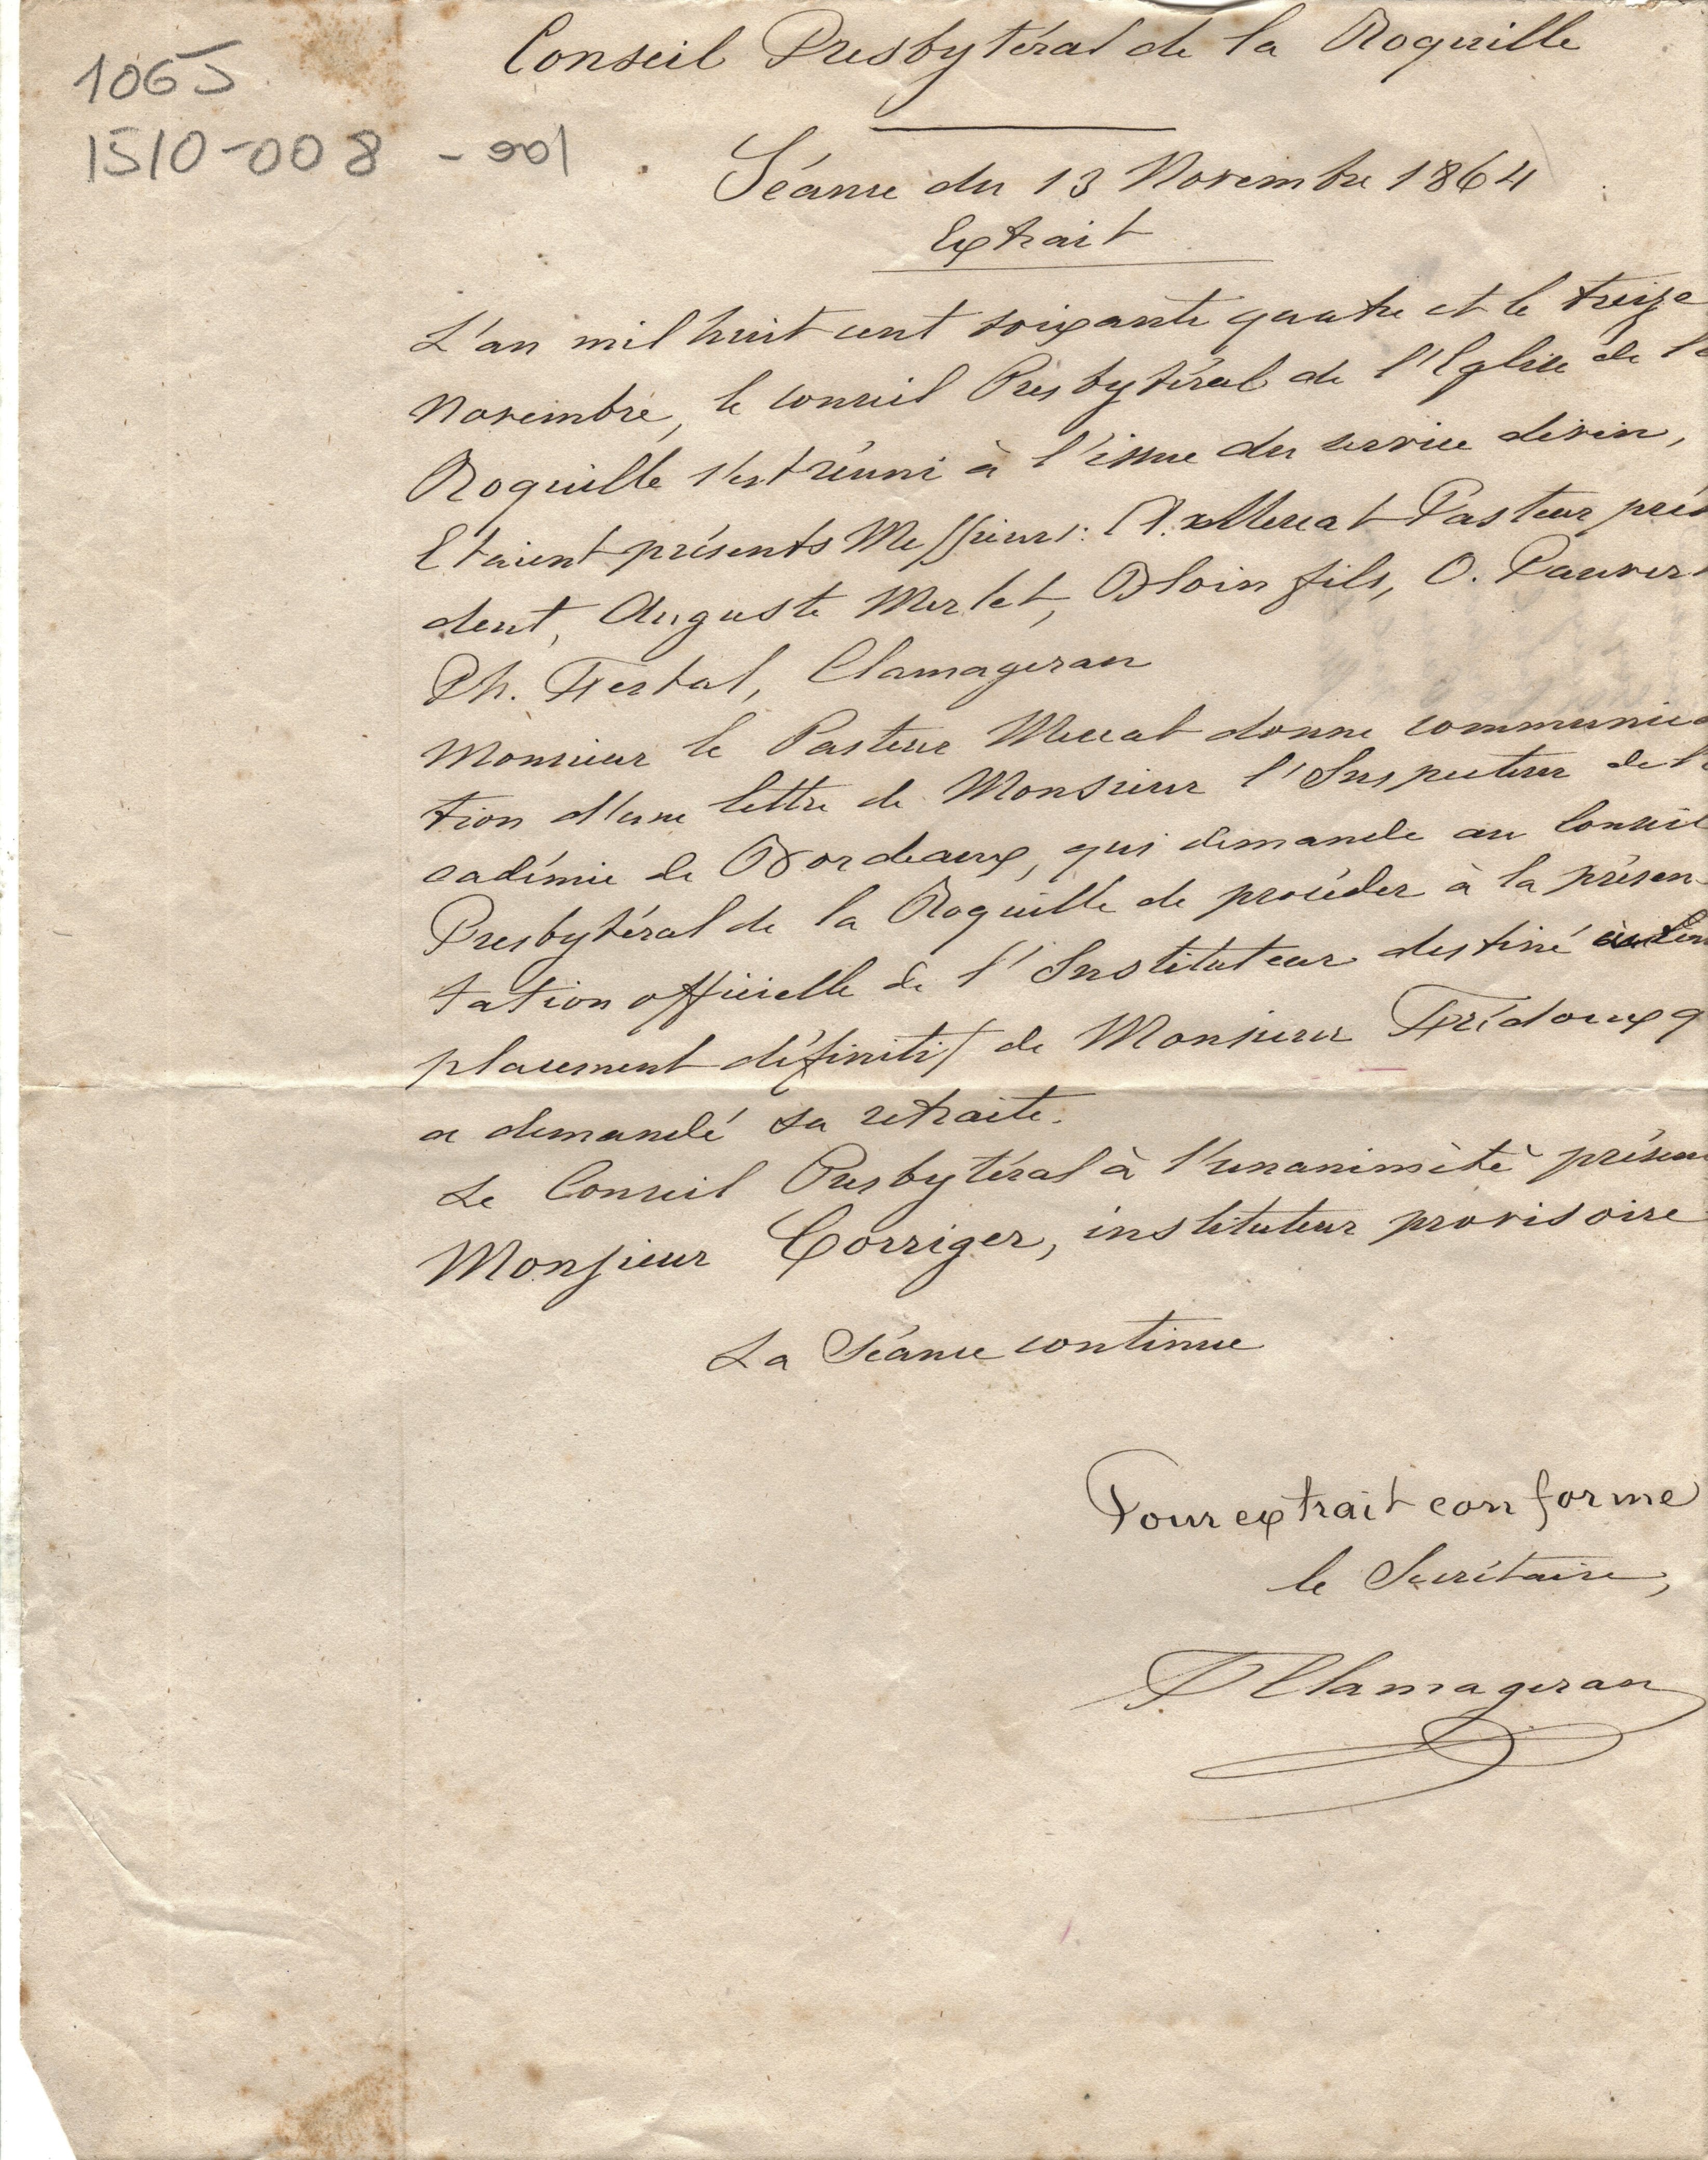 106J
1510-008 - 001
Conseil Presbytéral de la Roquille
Séance du 13 Novembre 1864
Extrait
L'an mil huit cent soixante quatre et le treize
Novembre, le conseil Presbytéral de l'Eglise de la
Roquille s'est réuni à l'issue du service divin,
Etaient présents Messieurs: Mercat Pasteur prés
dent, Auguste Merlet, Bloin fils, O. Pauvert
Ph. Festal, Clamageran
Monsieur le Pasteur Mercat donne communica
tion d'une lettre de Monsieur l'Inspecteur de l'a
cadémie de Bordeaux, qui demande au Conseil
Presbytéral de la Roquille de procéder à la présen-
tation officielle de l'Instituteur destiné
placement définitif de Monsieur Frédoux q
a demandé sa retraite.
Le Conseil Presbytéral à l'unanimité présen
Monsieur Corriger, instituteur provisoire
La Séance continue
Pour extrait conforme
le Secrétaire,
Clamageran